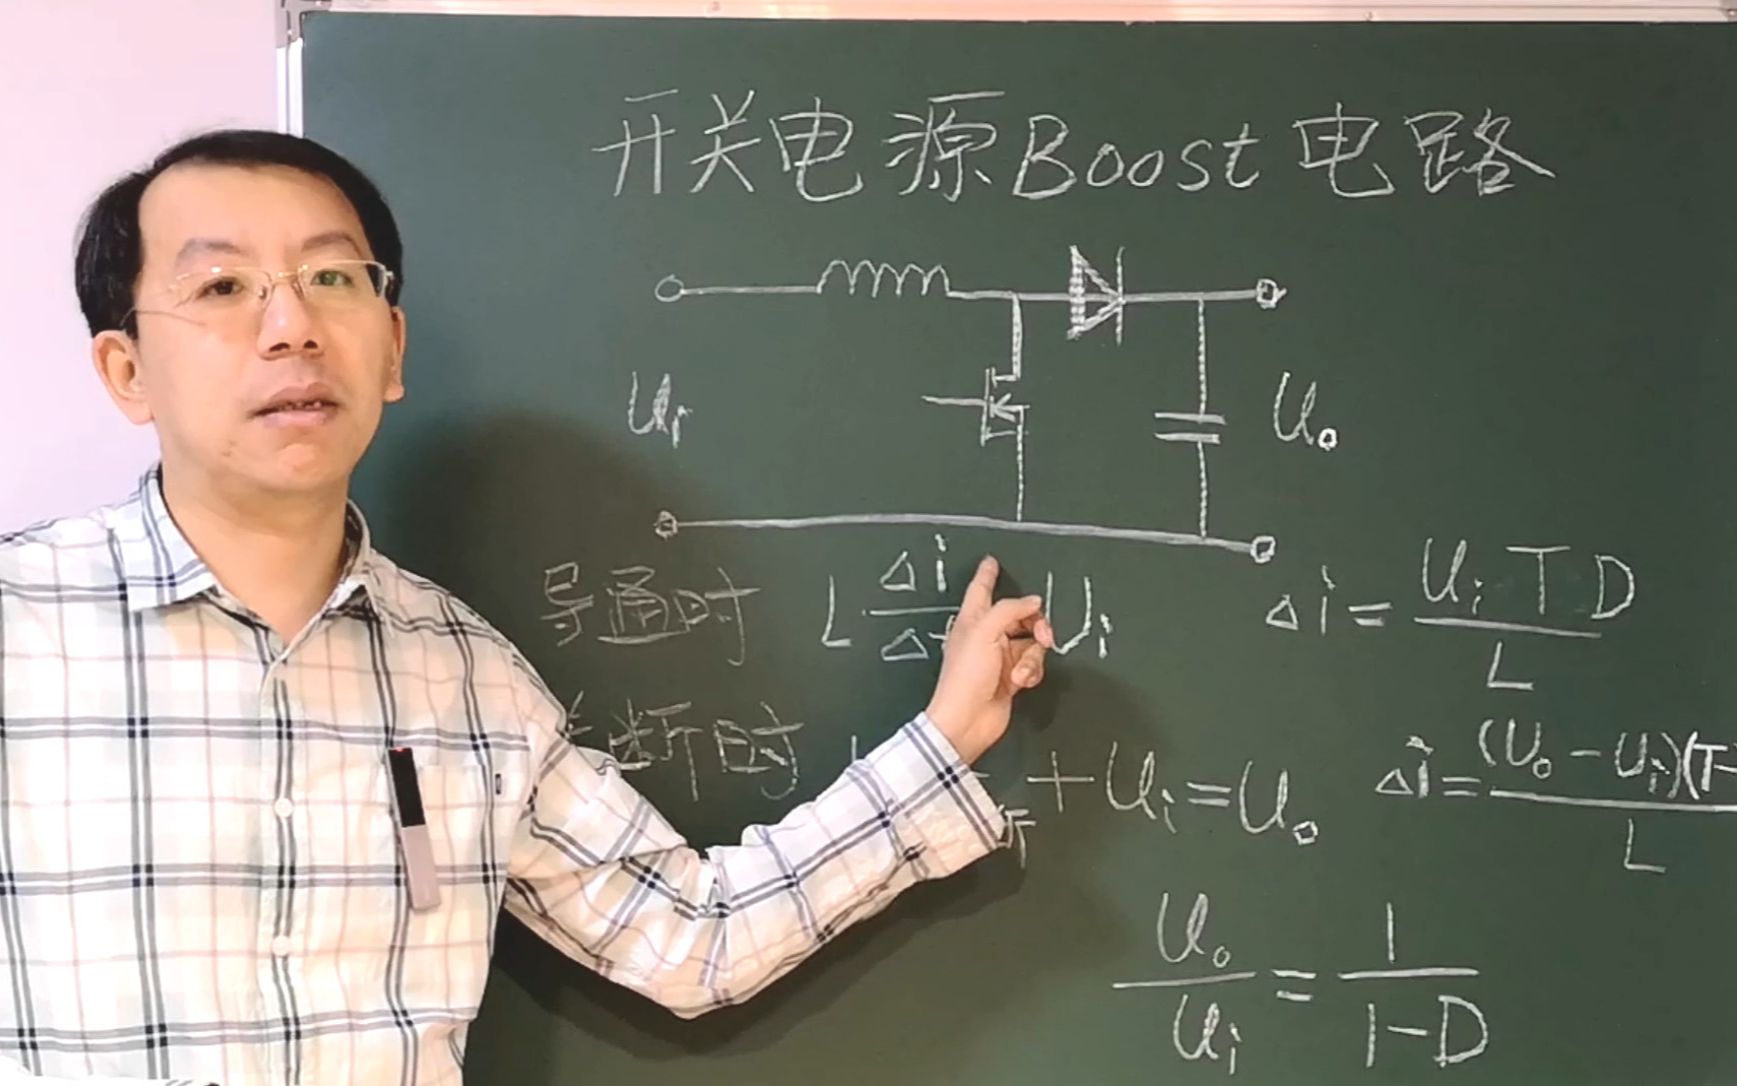 开关电源Boost电路
Ui
Uo
导通时 L Δi/Δt = Ui Δi = Ui T D / L
关断时 + Ui = Uo Δi = (Uo - Ui)(T- / L
Uo/Ui = 1/(1-D)